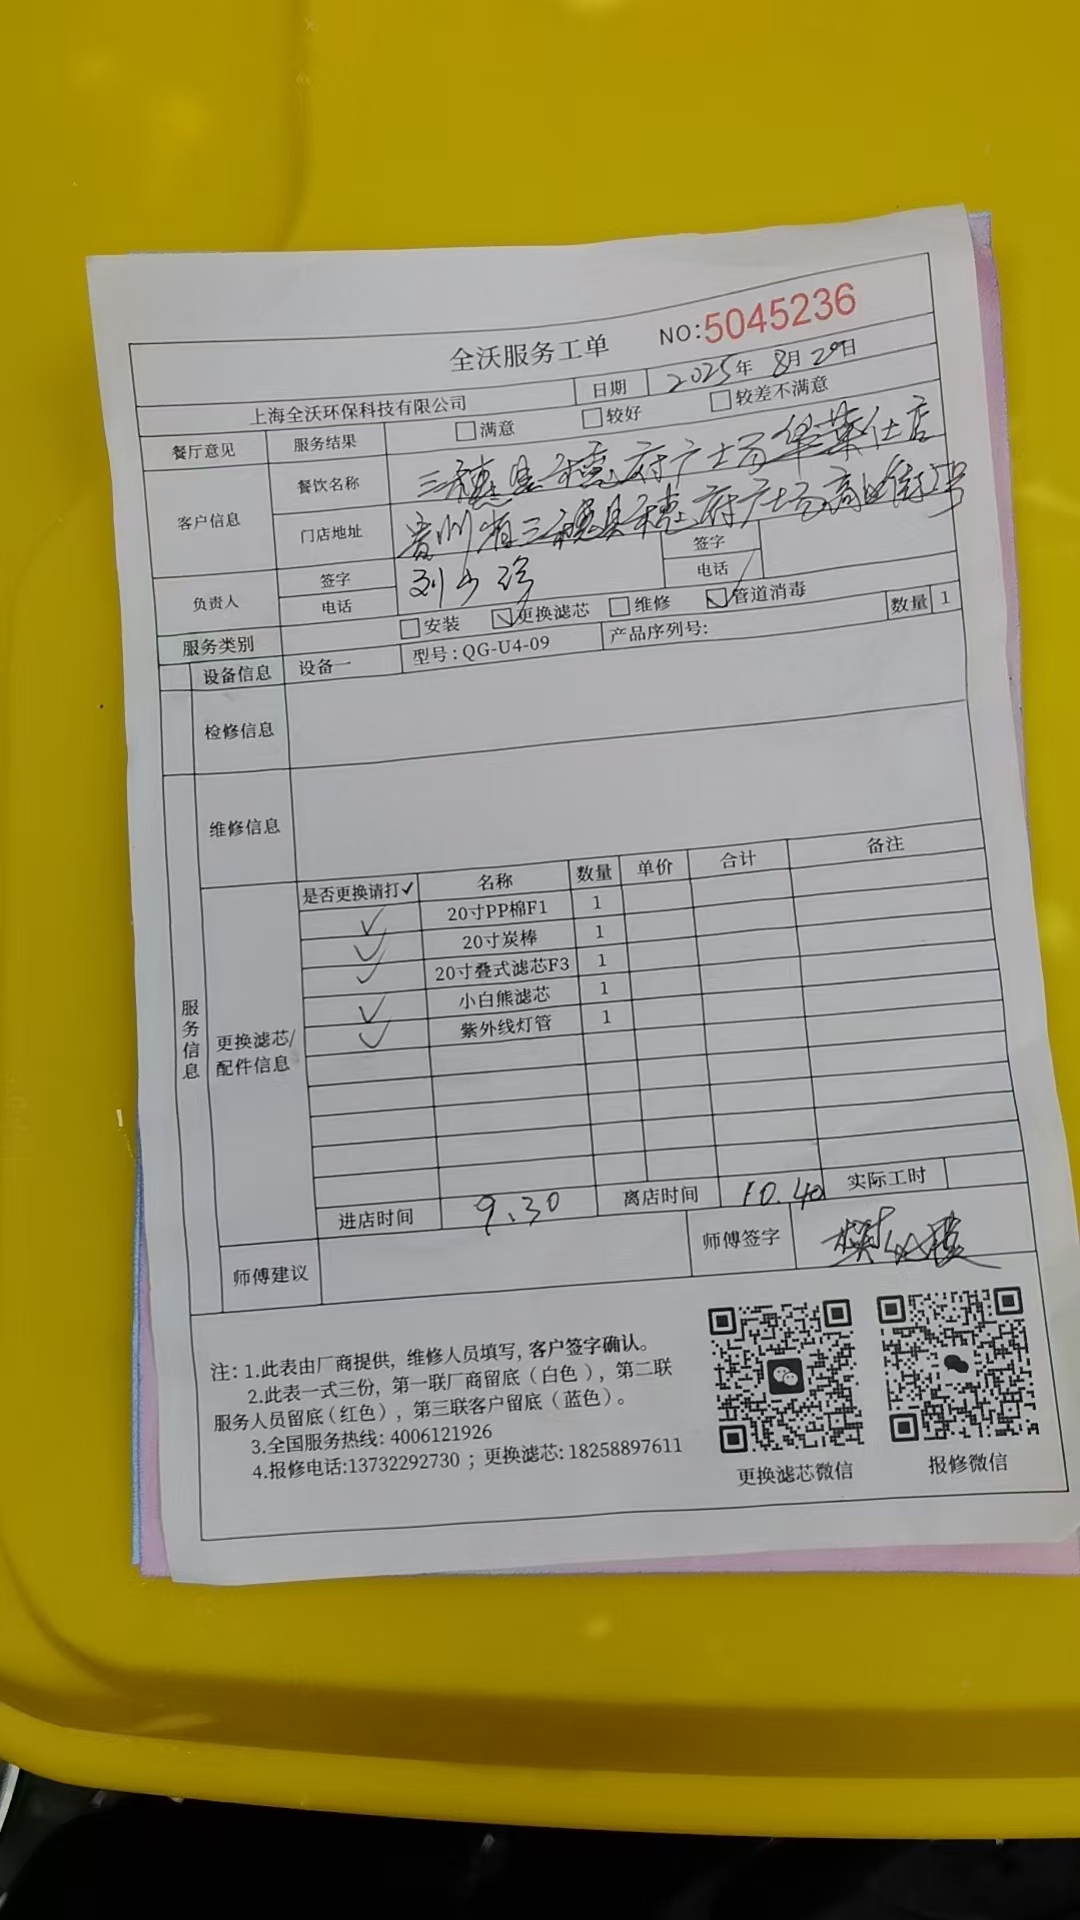 全沃服务工单 NO:5045236
上海全沃环保科技有限公司 日期 2025年 8月29日
餐厅意见 服务结果 □满意 □较好 □较差不满意
客户信息 餐饮名称 三穗县穗府广场华莱仕店
门店地址 贵州省三穗县穗府广场商业街2号
负责人 签字 刘小珍 签字
电话 电话
服务类别 □安装 ☑更换滤芯 □维修 ☑管道消毒
设备信息 设备一 型号:QG-U4-09 产品序列号: 数量 1
检修信息
维修信息
服务信息
更换滤芯/
配件信息
是否更换请打✓ 名称 数量 单价 合计 备注
✓ 20寸PP棉F1 1
✓ 20寸炭棒 1
✓ 20寸叠式滤芯F3 1
✓ 小白熊滤芯 1
✓ 紫外线灯管 1
进店时间 9.30 离店时间 10.40 实际工时
师傅建议 师傅签字
注: 1.此表由厂商提供, 维修人员填写, 客户签字确认。
2.此表一式三份, 第一联厂商留底（白色）, 第二联
服务人员留底（红色）, 第三联客户留底（蓝色）。
3.全国服务热线: 4006121926
4.报修电话:13732292730 ; 更换滤芯: 18258897611
更换滤芯微信 报修微信